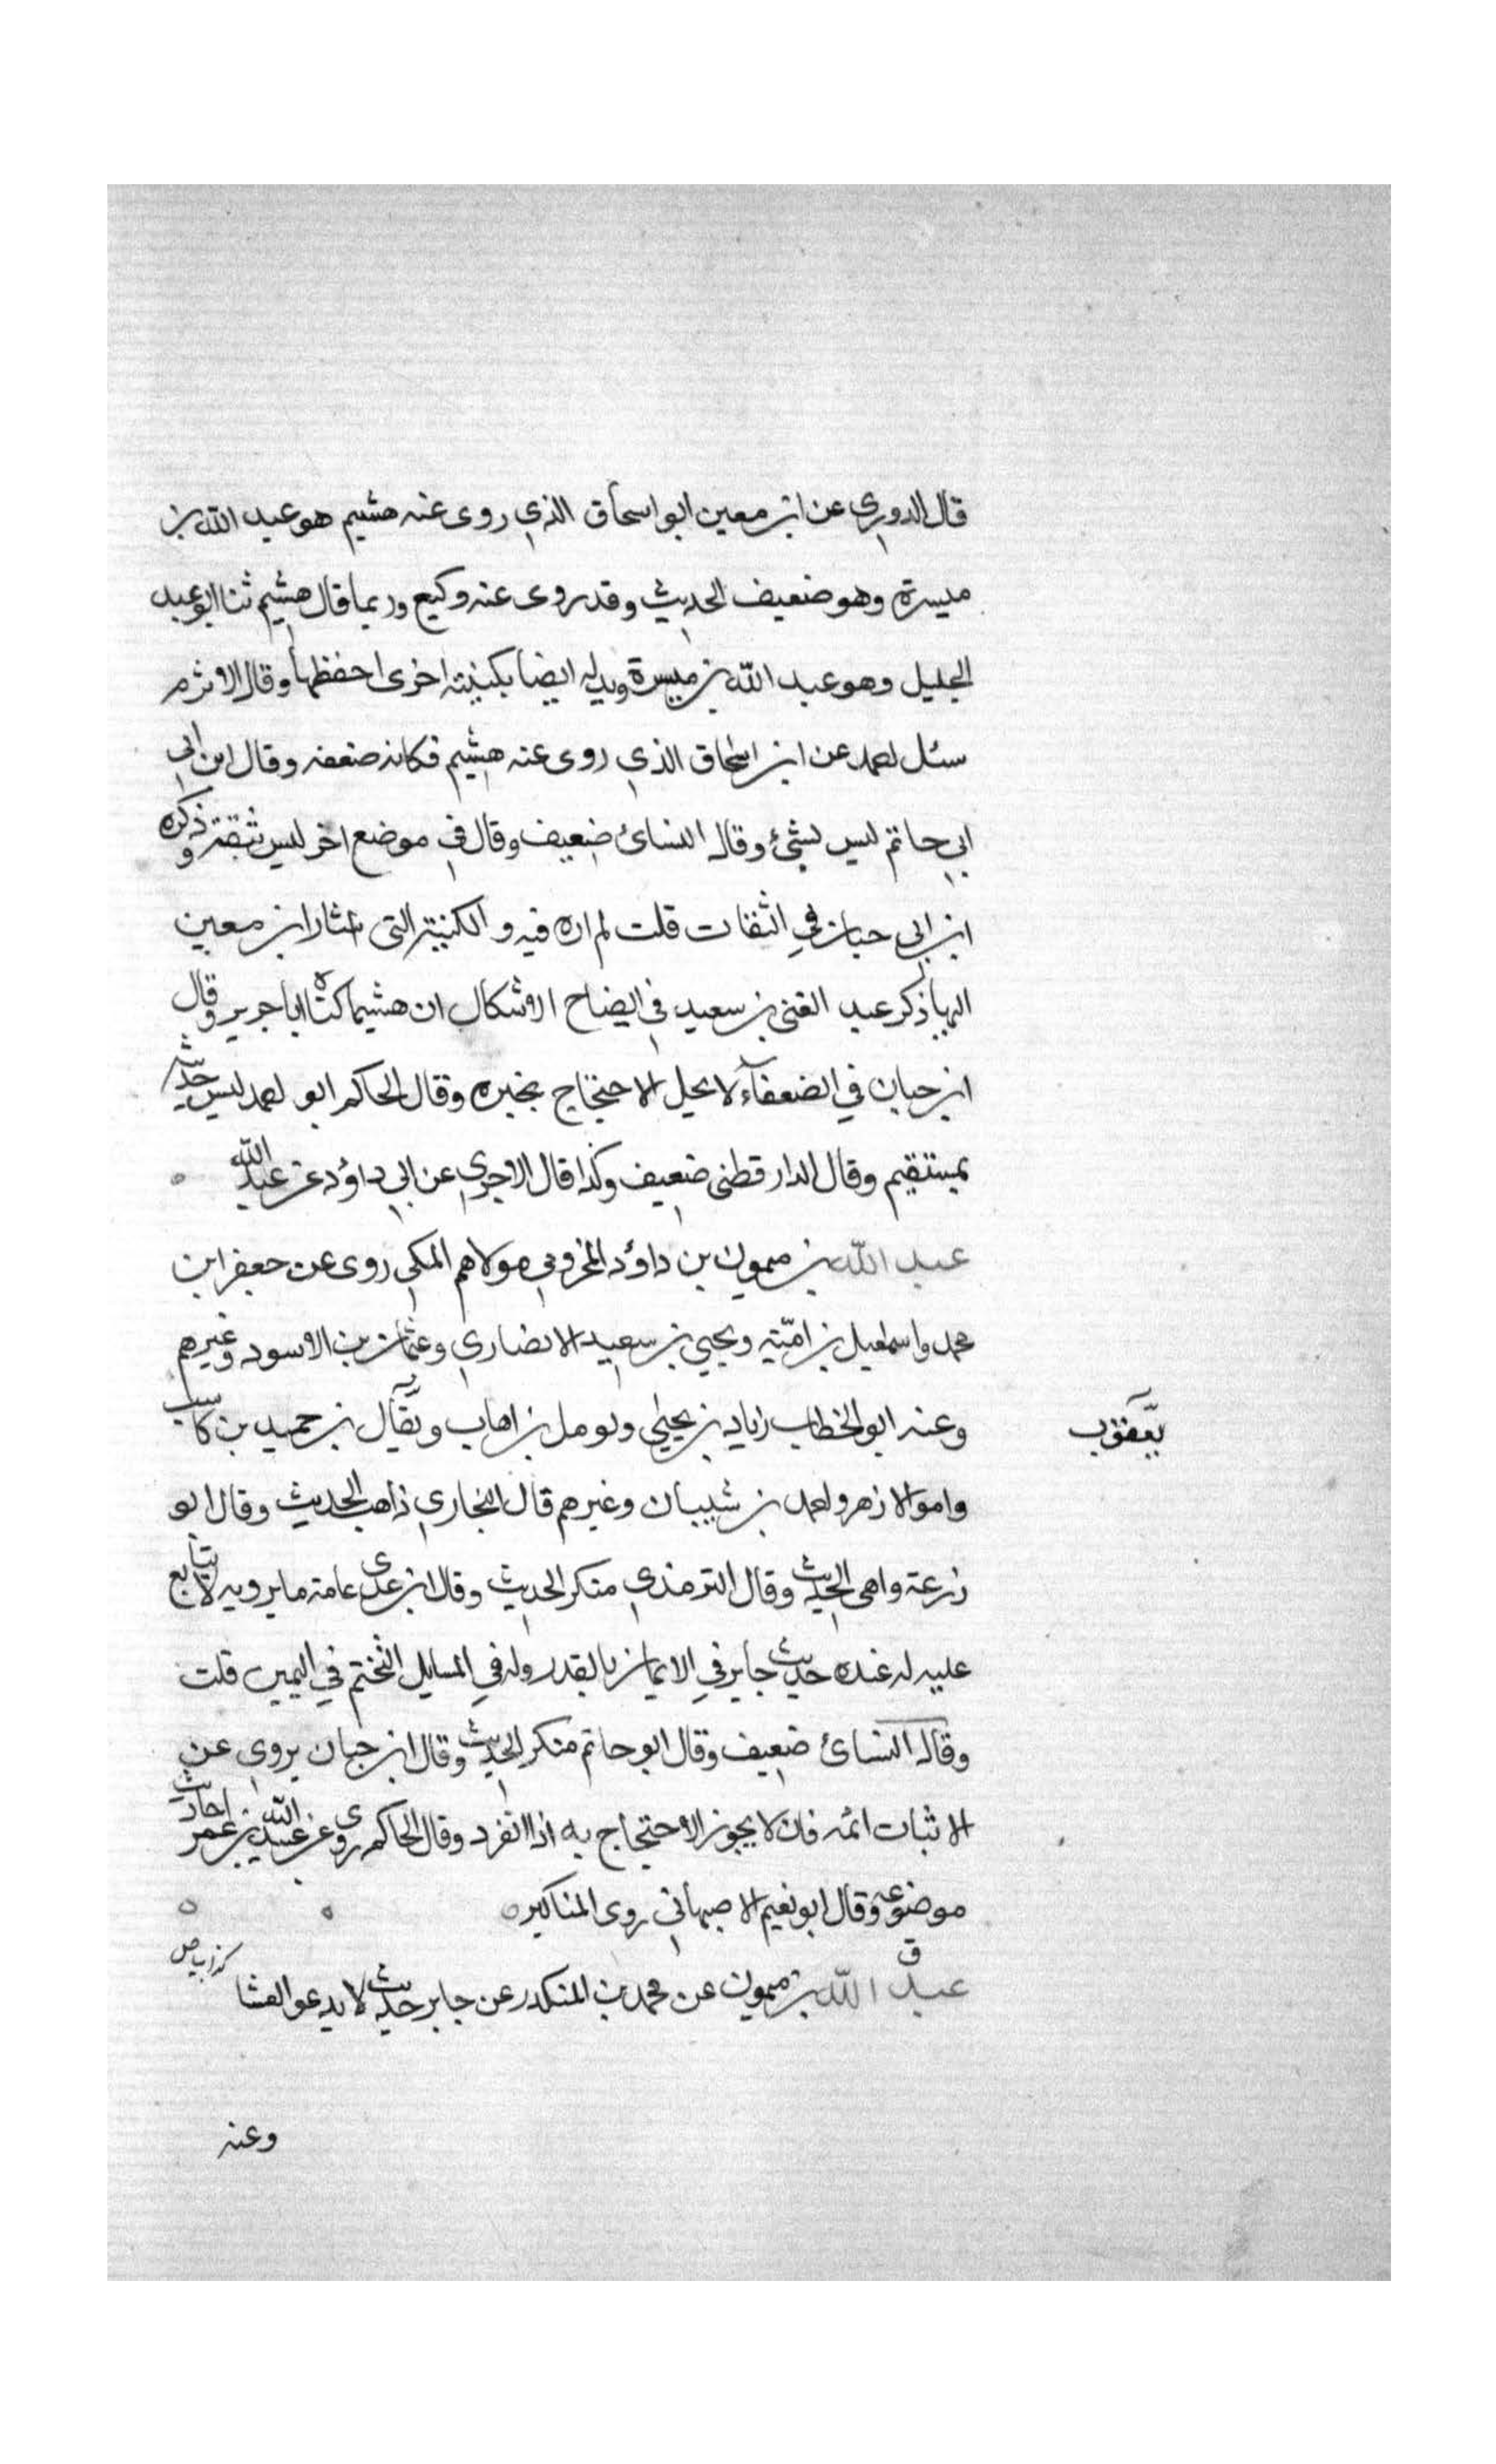 قال الدوري عن ابن معين ابو اسحاق الذي روى عنه هشيم هو عبد الله بن
ميسرة وهو ضعيف الحديث وقد روى عنه وكيع وربما قال هشيم ثنا ابو عبد
الجليل وهو عبد الله بن ميسرة ويدله ايضا بكنيته اخرى احفظها وقال الاثرم
سئل احمد عن ابن اسحاق الذي روى عنه هشيم فكانه ضعفه وقال ابن ابي
ابي حاتم ليس بشئ وقال النسائ ضعيف وقال في موضع اخر ليس بثقة وذكره
ابن ابي حبان في الثقات قلت لم اره فيه و الكنية التى اشار ابن معين
اليها ذكر عبد الغنى بن سعيد في ايضاح الاشكال ان هشيما كناه ابا جرير وقال
ابن حبان في الضعفآء لا يحل الاحتجاج بخبره وقال الحاكم ابو احمد ليس حديثه
بمستقيم وقال الدارقطنى ضعيف وكذا قال الاجري عن ابي داؤد عن عبد الله
عبد الله بن ميمون بن داؤد المخزومي مولاهم المكي روى عن جعفر ابن
محمد واسمعيل بن اميّة ويحيي بن سعيد الانصاري وعثمان بن الاسود وغيرهم
وعنه ابو الخطاب زياد بن يحيى ومومل بن اهاب ويقال بن حميد بن كاسب
يعقوب
وابو الازهر واحمد بن شيبان وغيرهم قال البخاري ذاهب الحديث وقال ابو
زرعة واهى الحديث وقال الترمذي منكر الحديث وقال ابن عدى عامة ما يرويه لا يتابع
عليه له عنده حديث جابر في الايمان بالقدر وله في المسايل التختم في اليمين قلت
وقال النسائ ضعيف وقال ابو حاتم منكر الحديث وقال ابن حبان يروي عن
الاثبات ائمه فان لا يجوز الاحتجاج به اذا انفرد وقال الحاكم روى عن عبيد الله بن عمر احاديث
موضوعة وقال ابو نعيم الاصبهاني روى المناكير
ق
عبد الله بن ميمون عن محمد بن المنكدر عن جابر حديث لا يدعو العشا
وعنه